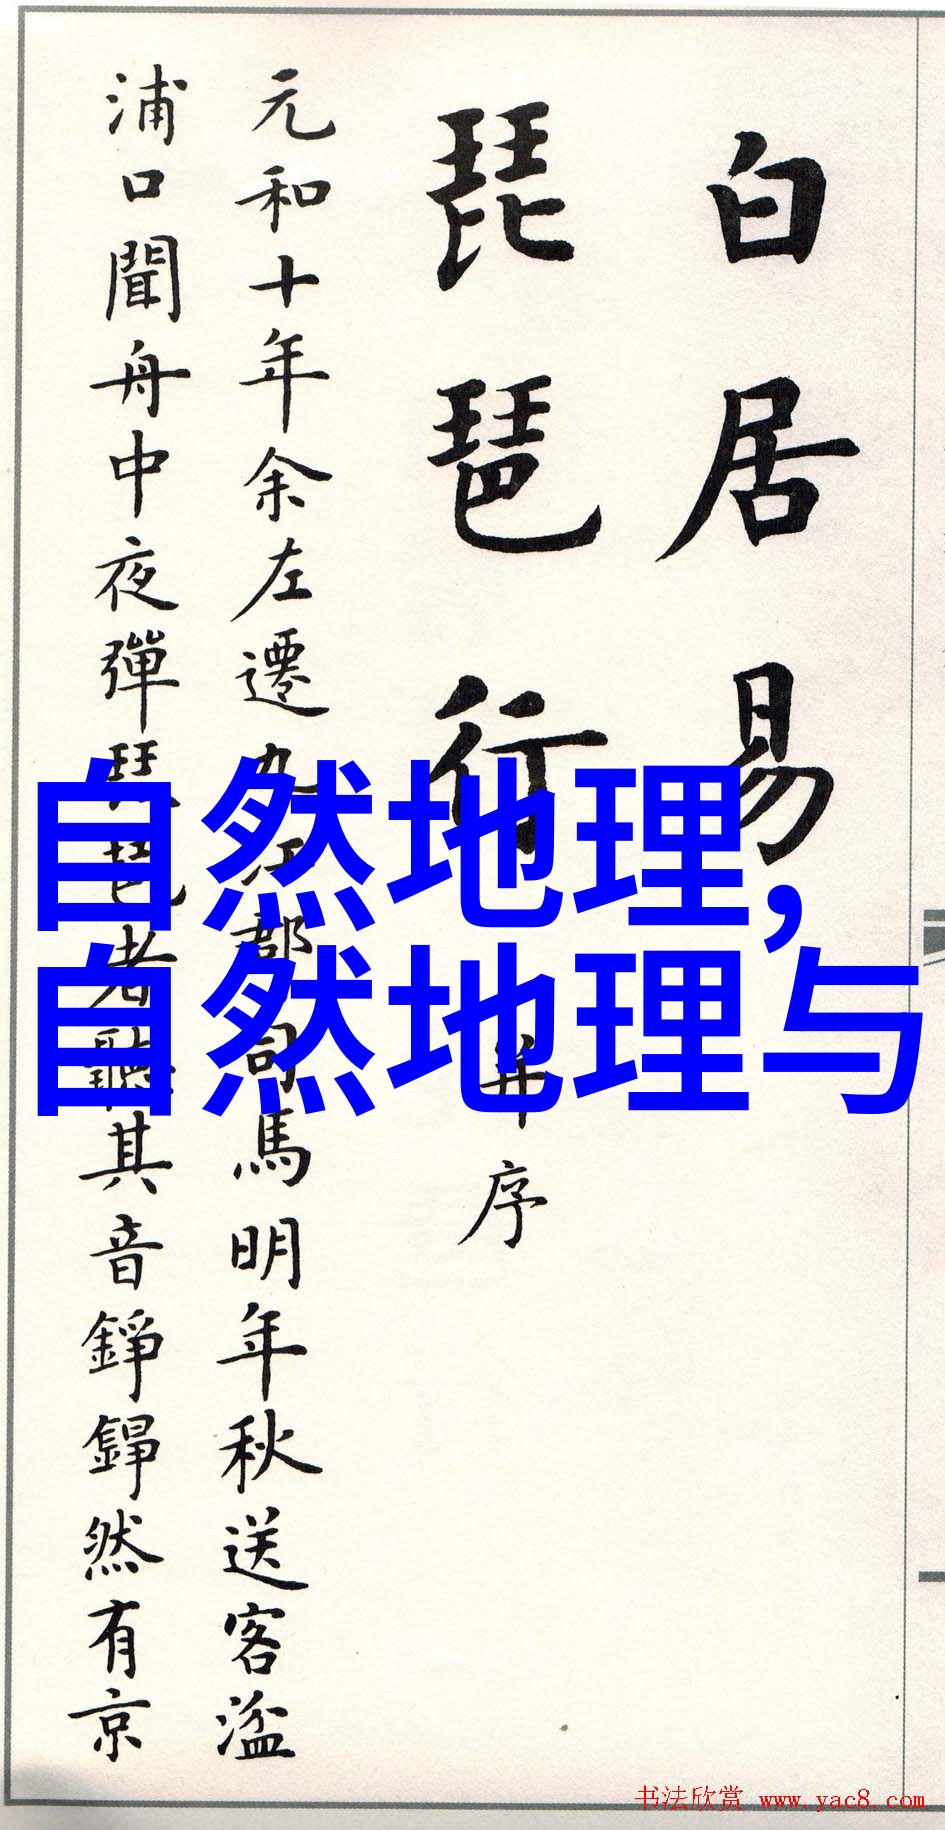 白居易
琵琶行并序
元和十年余左遷九江郡司馬明年秋送客湓
浦口聞舟中夜彈琵琶者聽其音錚錚然有京
自然地理,
自然地理与
书法欣赏 www.yac8.com